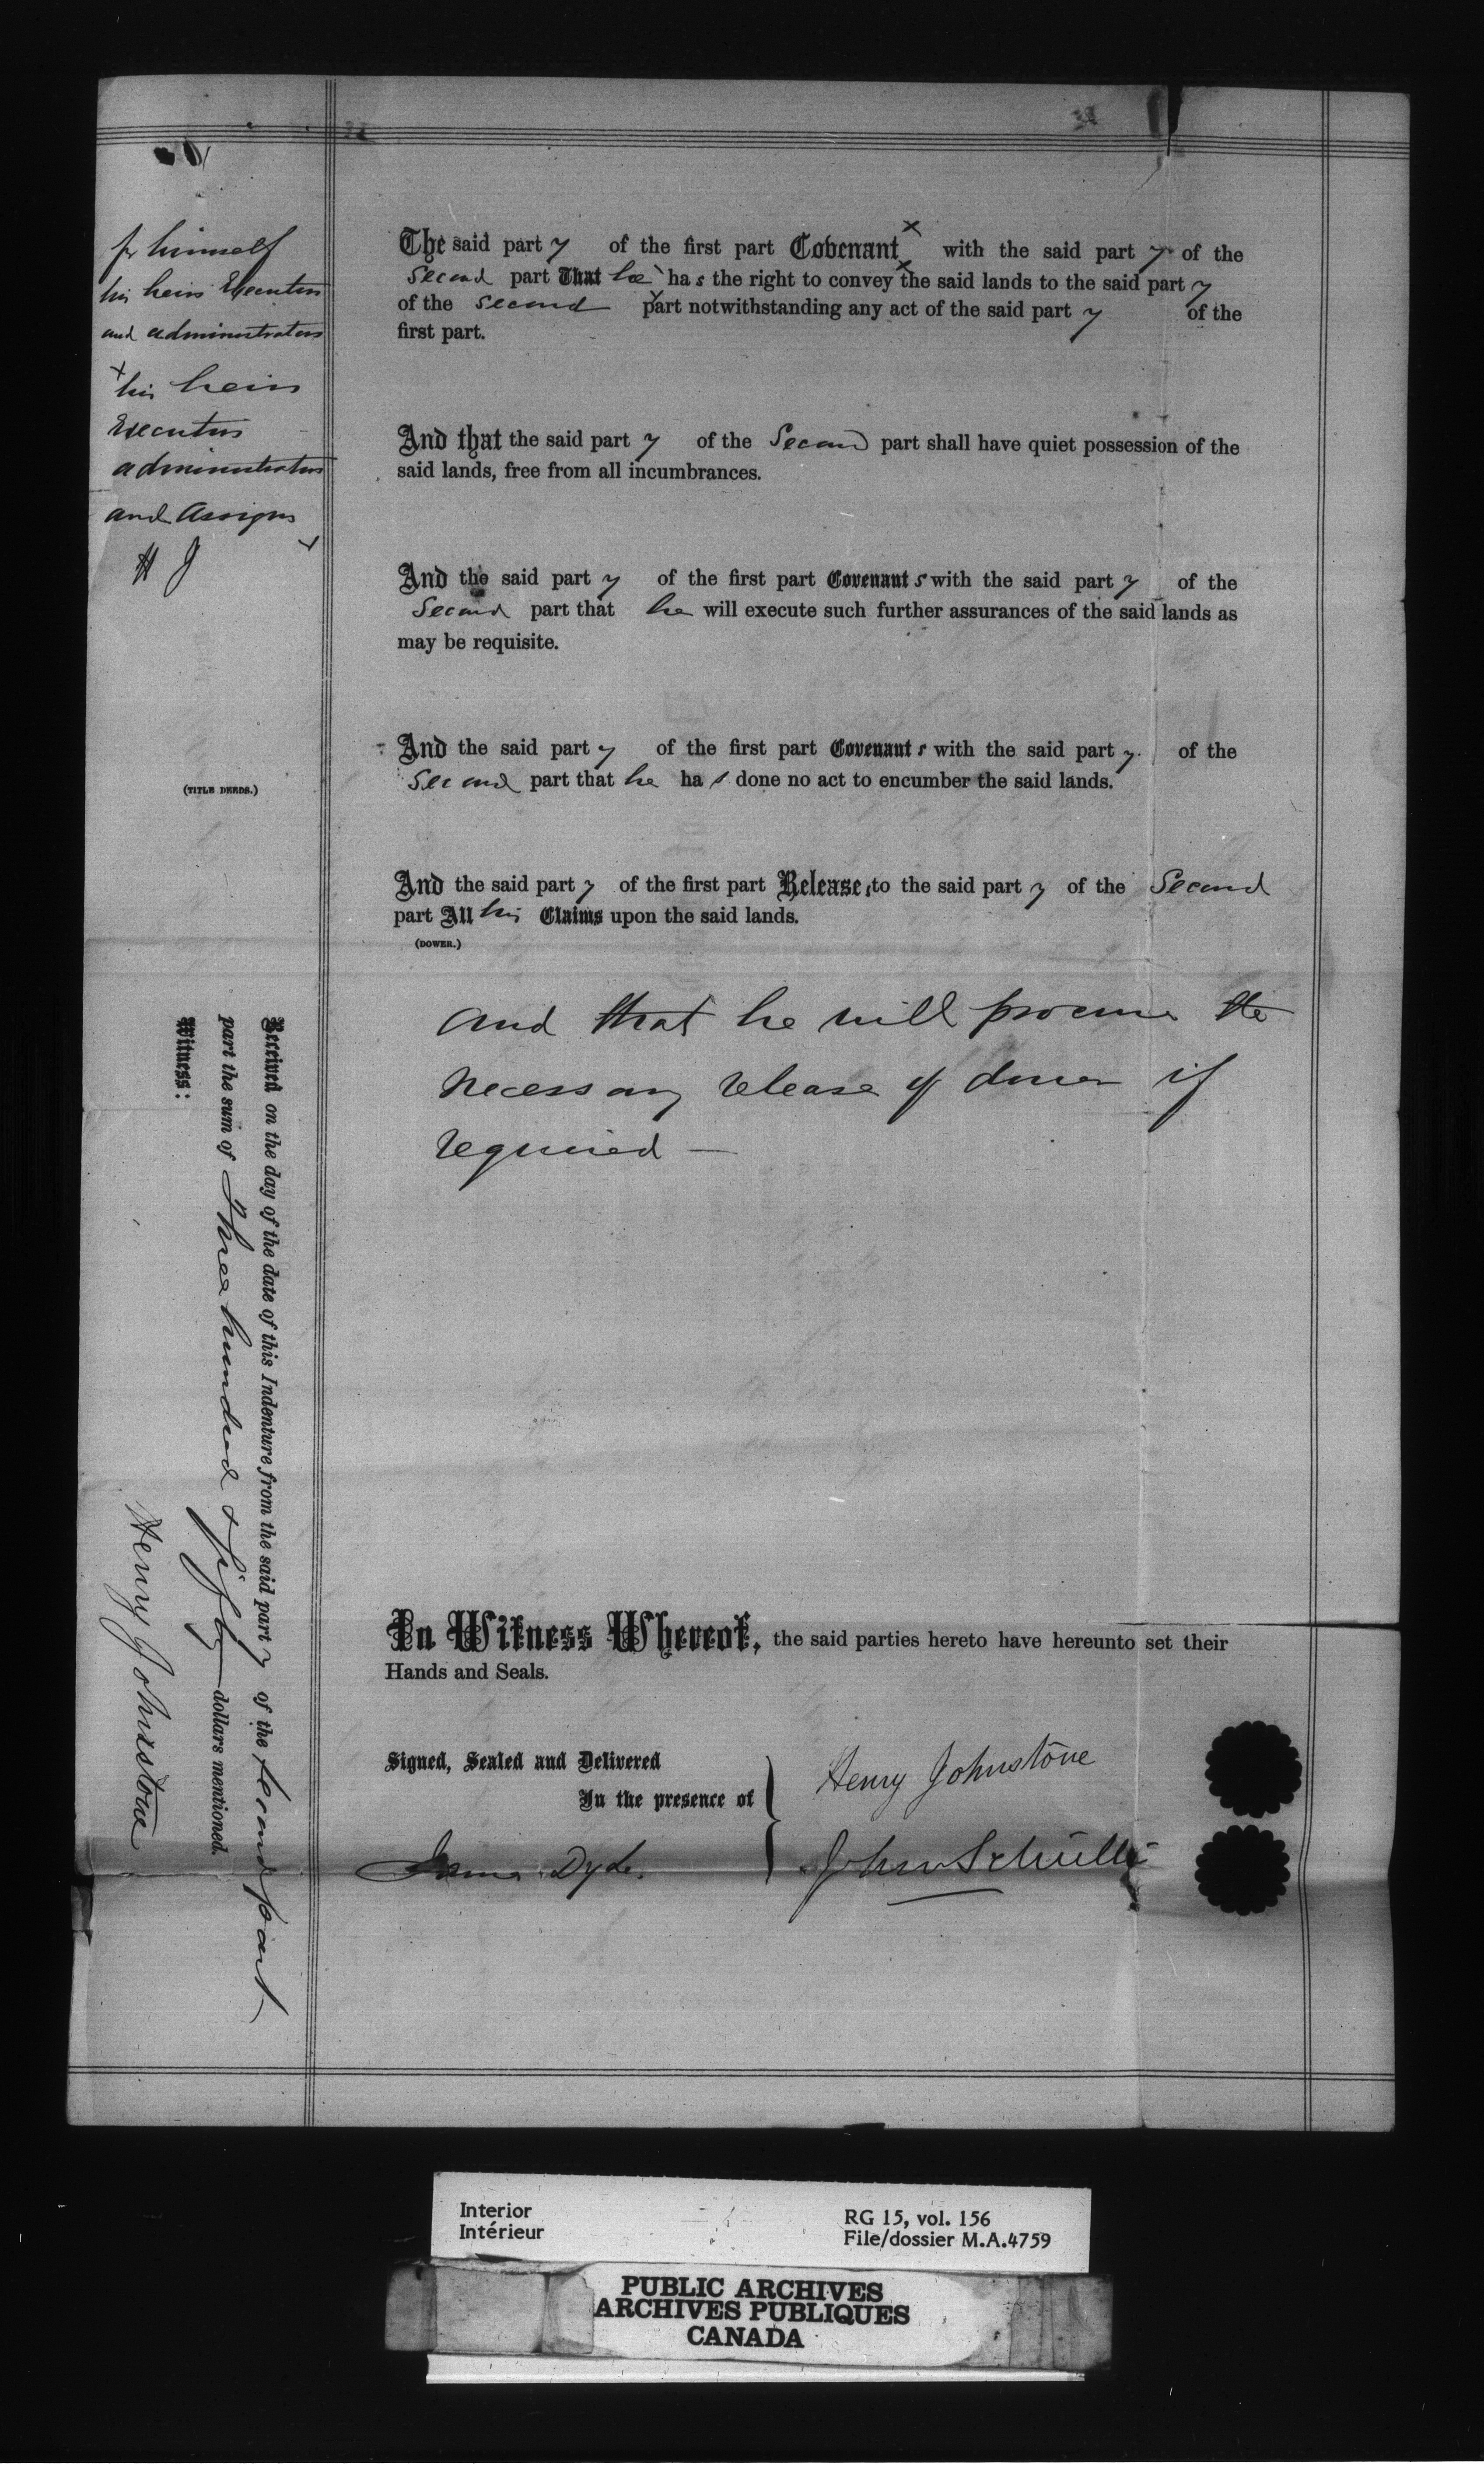 for himself
his heirs Executors
and administrators
x his heirs
Executors
administrators
and Assigns x
H J
The said party of the first part Covenant x with the said party of the
Second part That he has the right to convey x the said lands to the said party
of the second part notwithstanding any act of the said party of the
first part.
And that the said party of the Second part shall have quiet possession of the
said lands, free from all incumbrances.
And the said party of the first part Covenants with the said party of the
Second part that he will execute such further assurances of the said lands as
may be requisite.
(TITLE DEEDS.)
And the said party of the first part Covenants with the said party of the
Second part that he has done no act to encumber the said lands.
And the said party of the first part Releases to the said party of the Second
part All his Claims upon the said lands.
(DOWER.)
and that he will procure the
necessary release of dower if
required —
Received on the day of the date of this Indenture from the said party of the second part
part the sum of Three hundred & fifty dollars mentioned.
Witness:
Henry Johnstone
In Witness Whereof, the said parties hereto have hereunto set their
Hands and Seals.
Signed, Sealed and Delivered
In the presence of
Henry Johnstone
Dyde.
John Schultz
Interior
Intérieur
RG 15, vol. 156
File/dossier M.A.4759
PUBLIC ARCHIVES
ARCHIVES PUBLIQUES
CANADA